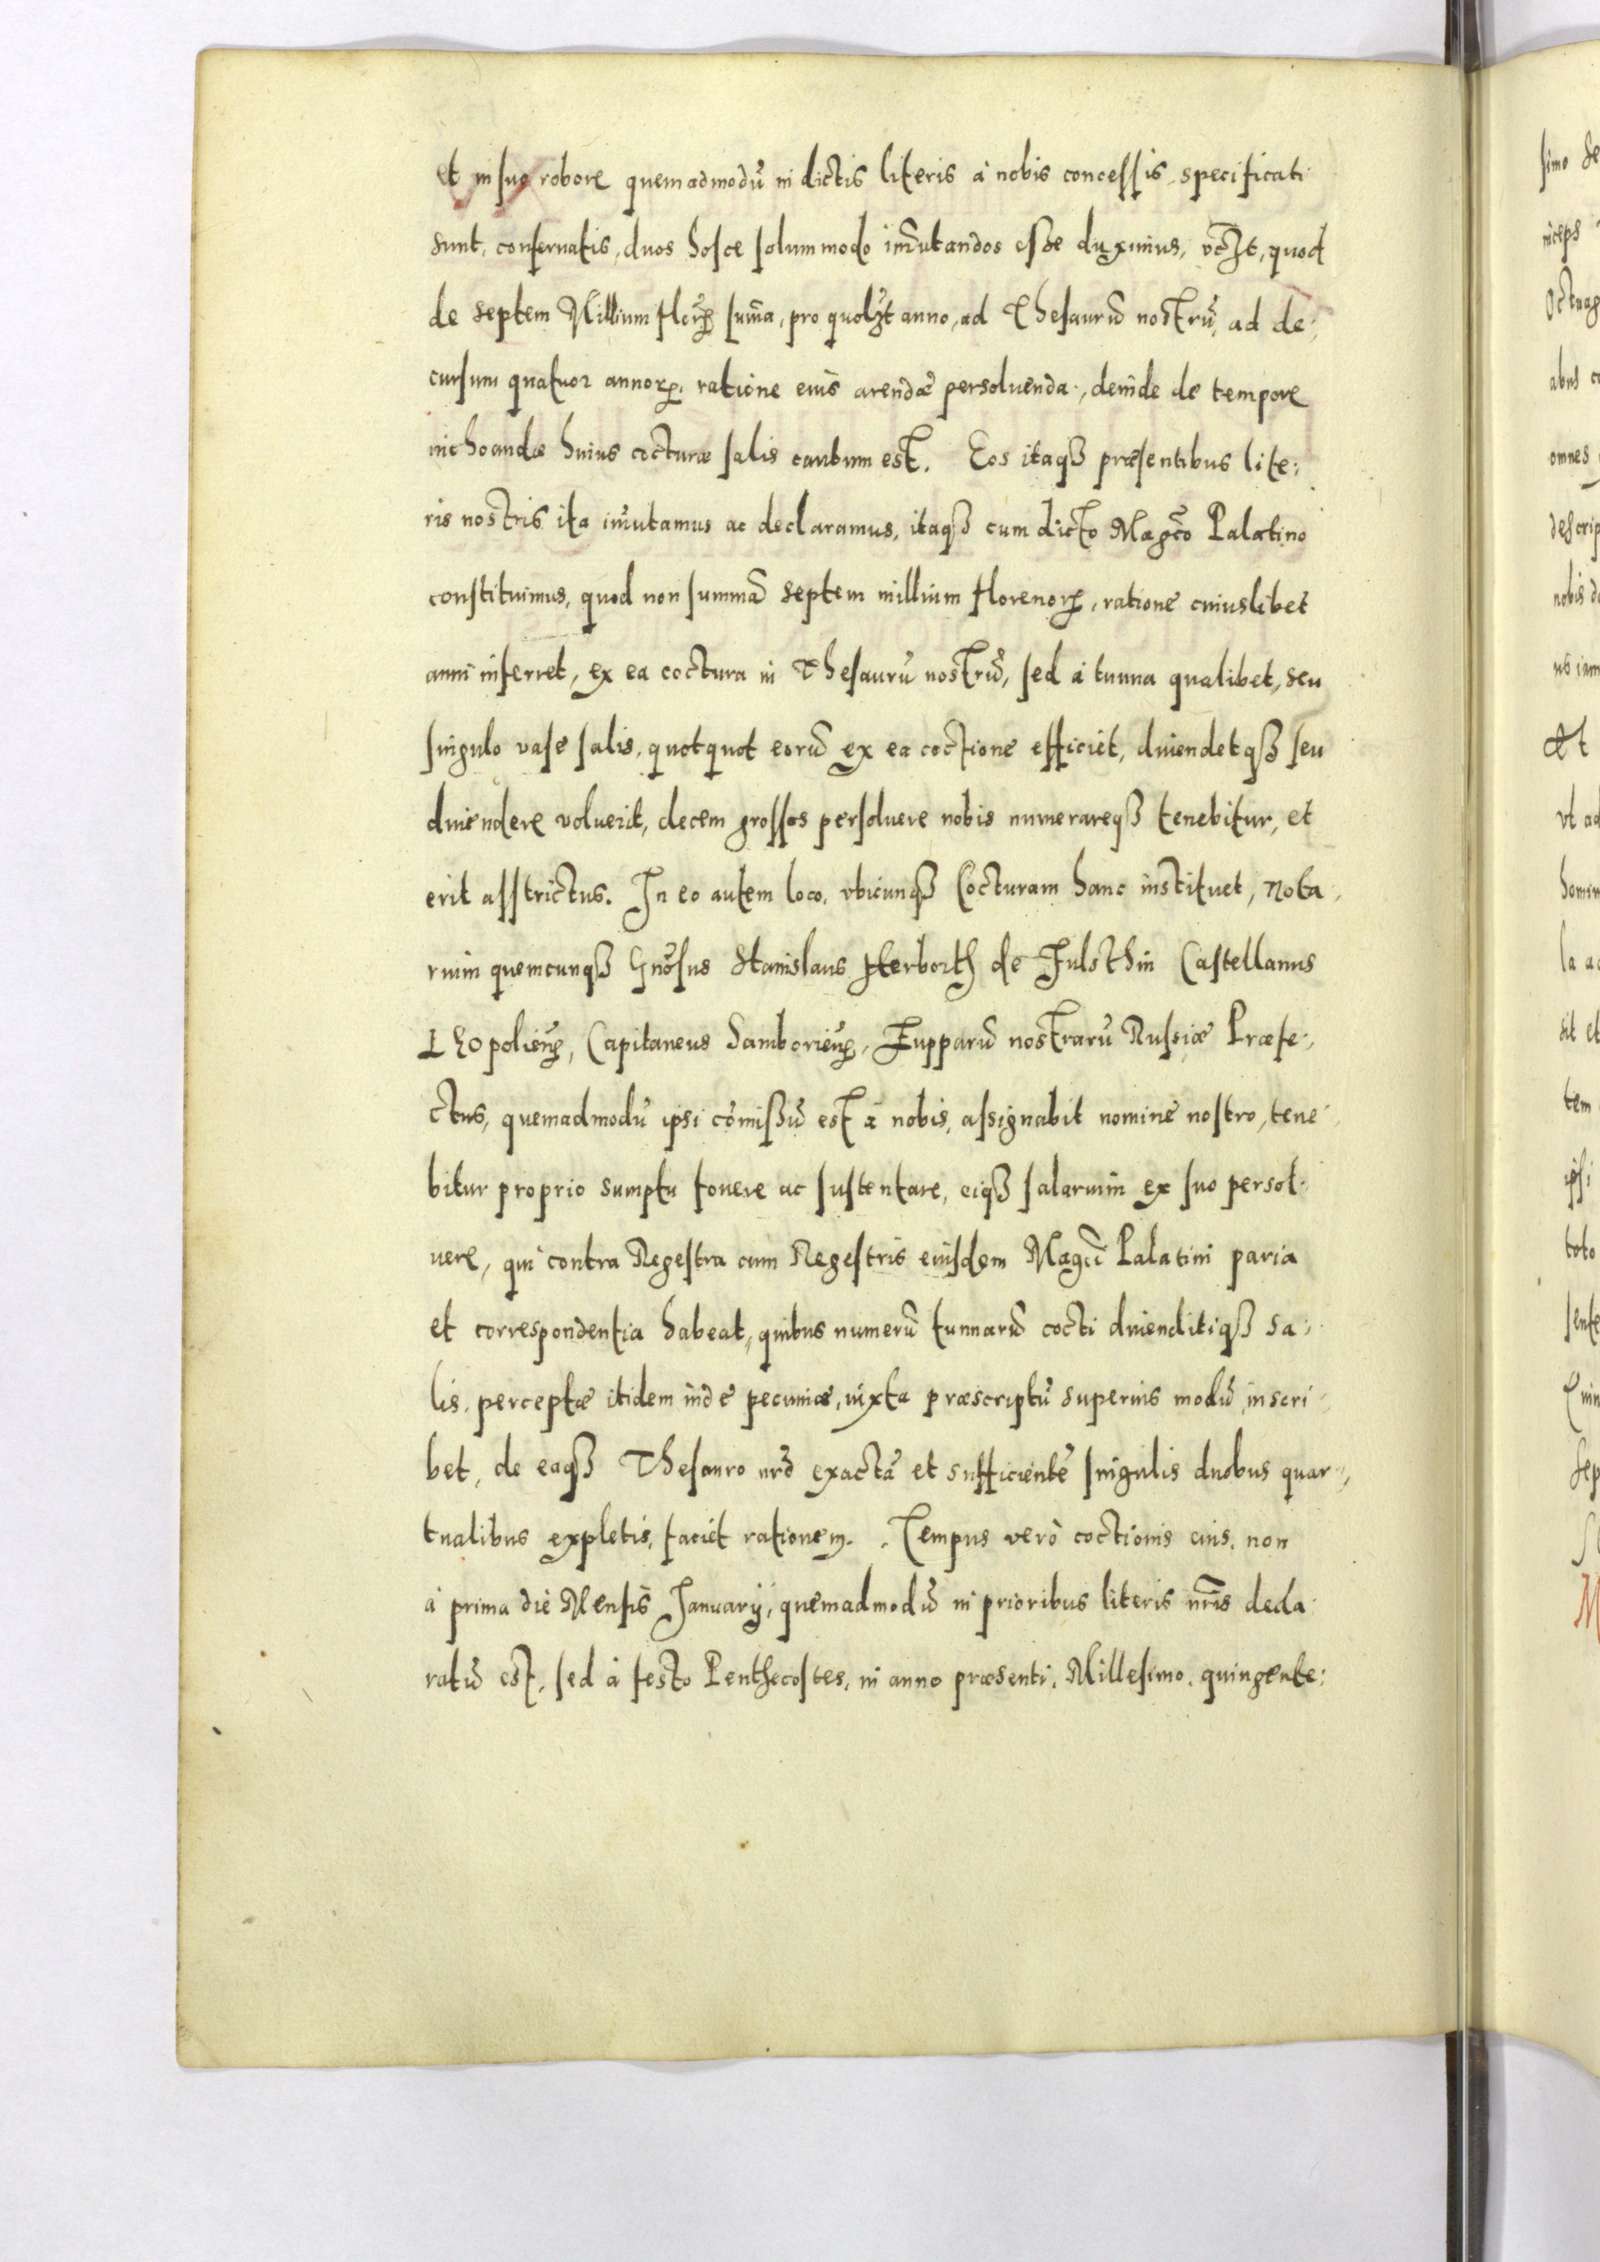 et in suo robore quemadmodū in dictis literis à nobis concessis, specificati
sunt, conseruatis, duos hosce solummodo im̄utandos esse duximus, vczt, quod
de septem Millium flor̄ sum̄a, pro quolzt anno, ad Thesaurū nostrū, ad de:
cursum quatuor annorꝝ, ratione eius arendæ persoluenda, deinde de tempore
inchoandæ huius cocturæ salis cautum est. Eos itaqꝫ præsentibus lite:
ris nostris ita im̄utamus ac declaramus, itaqꝫ cum dicto Magco Palatino
constituimus, quod non summā septem millium florenorꝝ, ratione cuiuslibet
anni inferret, ex ea coctura in Thesaurū nostrū, sed à tunna qualibet, seu
singulo vase salis, quotquot eorū ex ea coctione efficiet, diuendetqꝫ seu
diuendere voluerit, decem grossos persoluere nobis numerareqꝫ tenebitur, et
erit asstrictus. In eo autem loco, vbicunqꝫ Cocturam hanc instituet, Nota:
rium quemcunqꝫ Gnōsus Stanislaus Herborth de Fulsthin Castellanus
Leopolieñ, Capitaneus Samborieñ, Zupparū nostrarū Russiæ Præfe:
ctus, quemadmodū ipsi cōmissū est à nobis, assignabit nomine nostro, tene:
bitur proprio sumptu fouere ac sustentare, eiqꝫ salarium ex suo persol:
uere, qui contra Regestra cum Regestris eiusdem Magci Palatini paria
et correspondentia habeat, quibus numerū tunnarū cocti diuenditiqꝫ sa:
lis, perceptæ itidem inde pecuniæ, iuxta præscriptū superius modū, inscri:
bet, de eaqꝫ Thesauro nr̄o exactā et sufficientē singulis duobus quar:
tualibus expletis, faciet rationem. Tempus verò coctionis eius, non
à prima die Mensis January, quemadmodū in prioribus literis nr̄is decla:
ratū est, sed à festo Penthecostes, in anno præsenti, Millesimo, quingente: